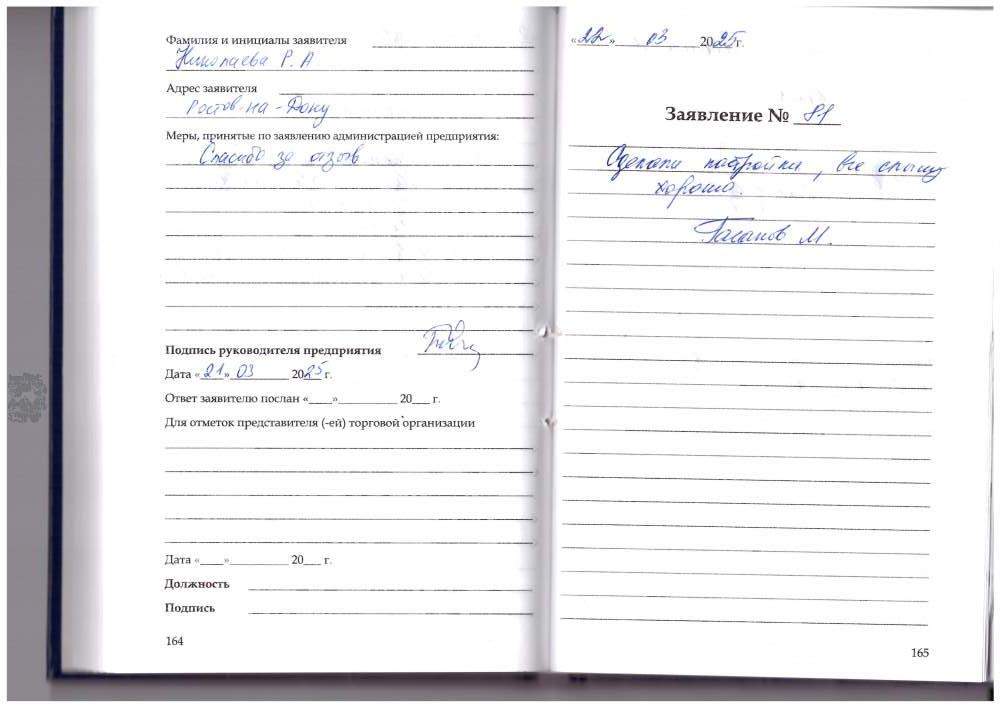 Фамилия и инициалы заявителя
Николаева Р. А
Адрес заявителя
Ростов-на-Дону
Меры, принятые по заявлению администрацией предприятия:
Спасибо за отзыв
Подпись руководителя предприятия
Дата «21» 03 2025 г.
Ответ заявителю послан «____»__________ 20___ г.
Для отметок представителя (-ей) торговой организации
Дата «____»__________ 20___ г.
Должность
Подпись
164
«22» 03 2025 г.
Заявление № 81
Сделали настройки, все слышу
хорошо.
Гасанов М.
165